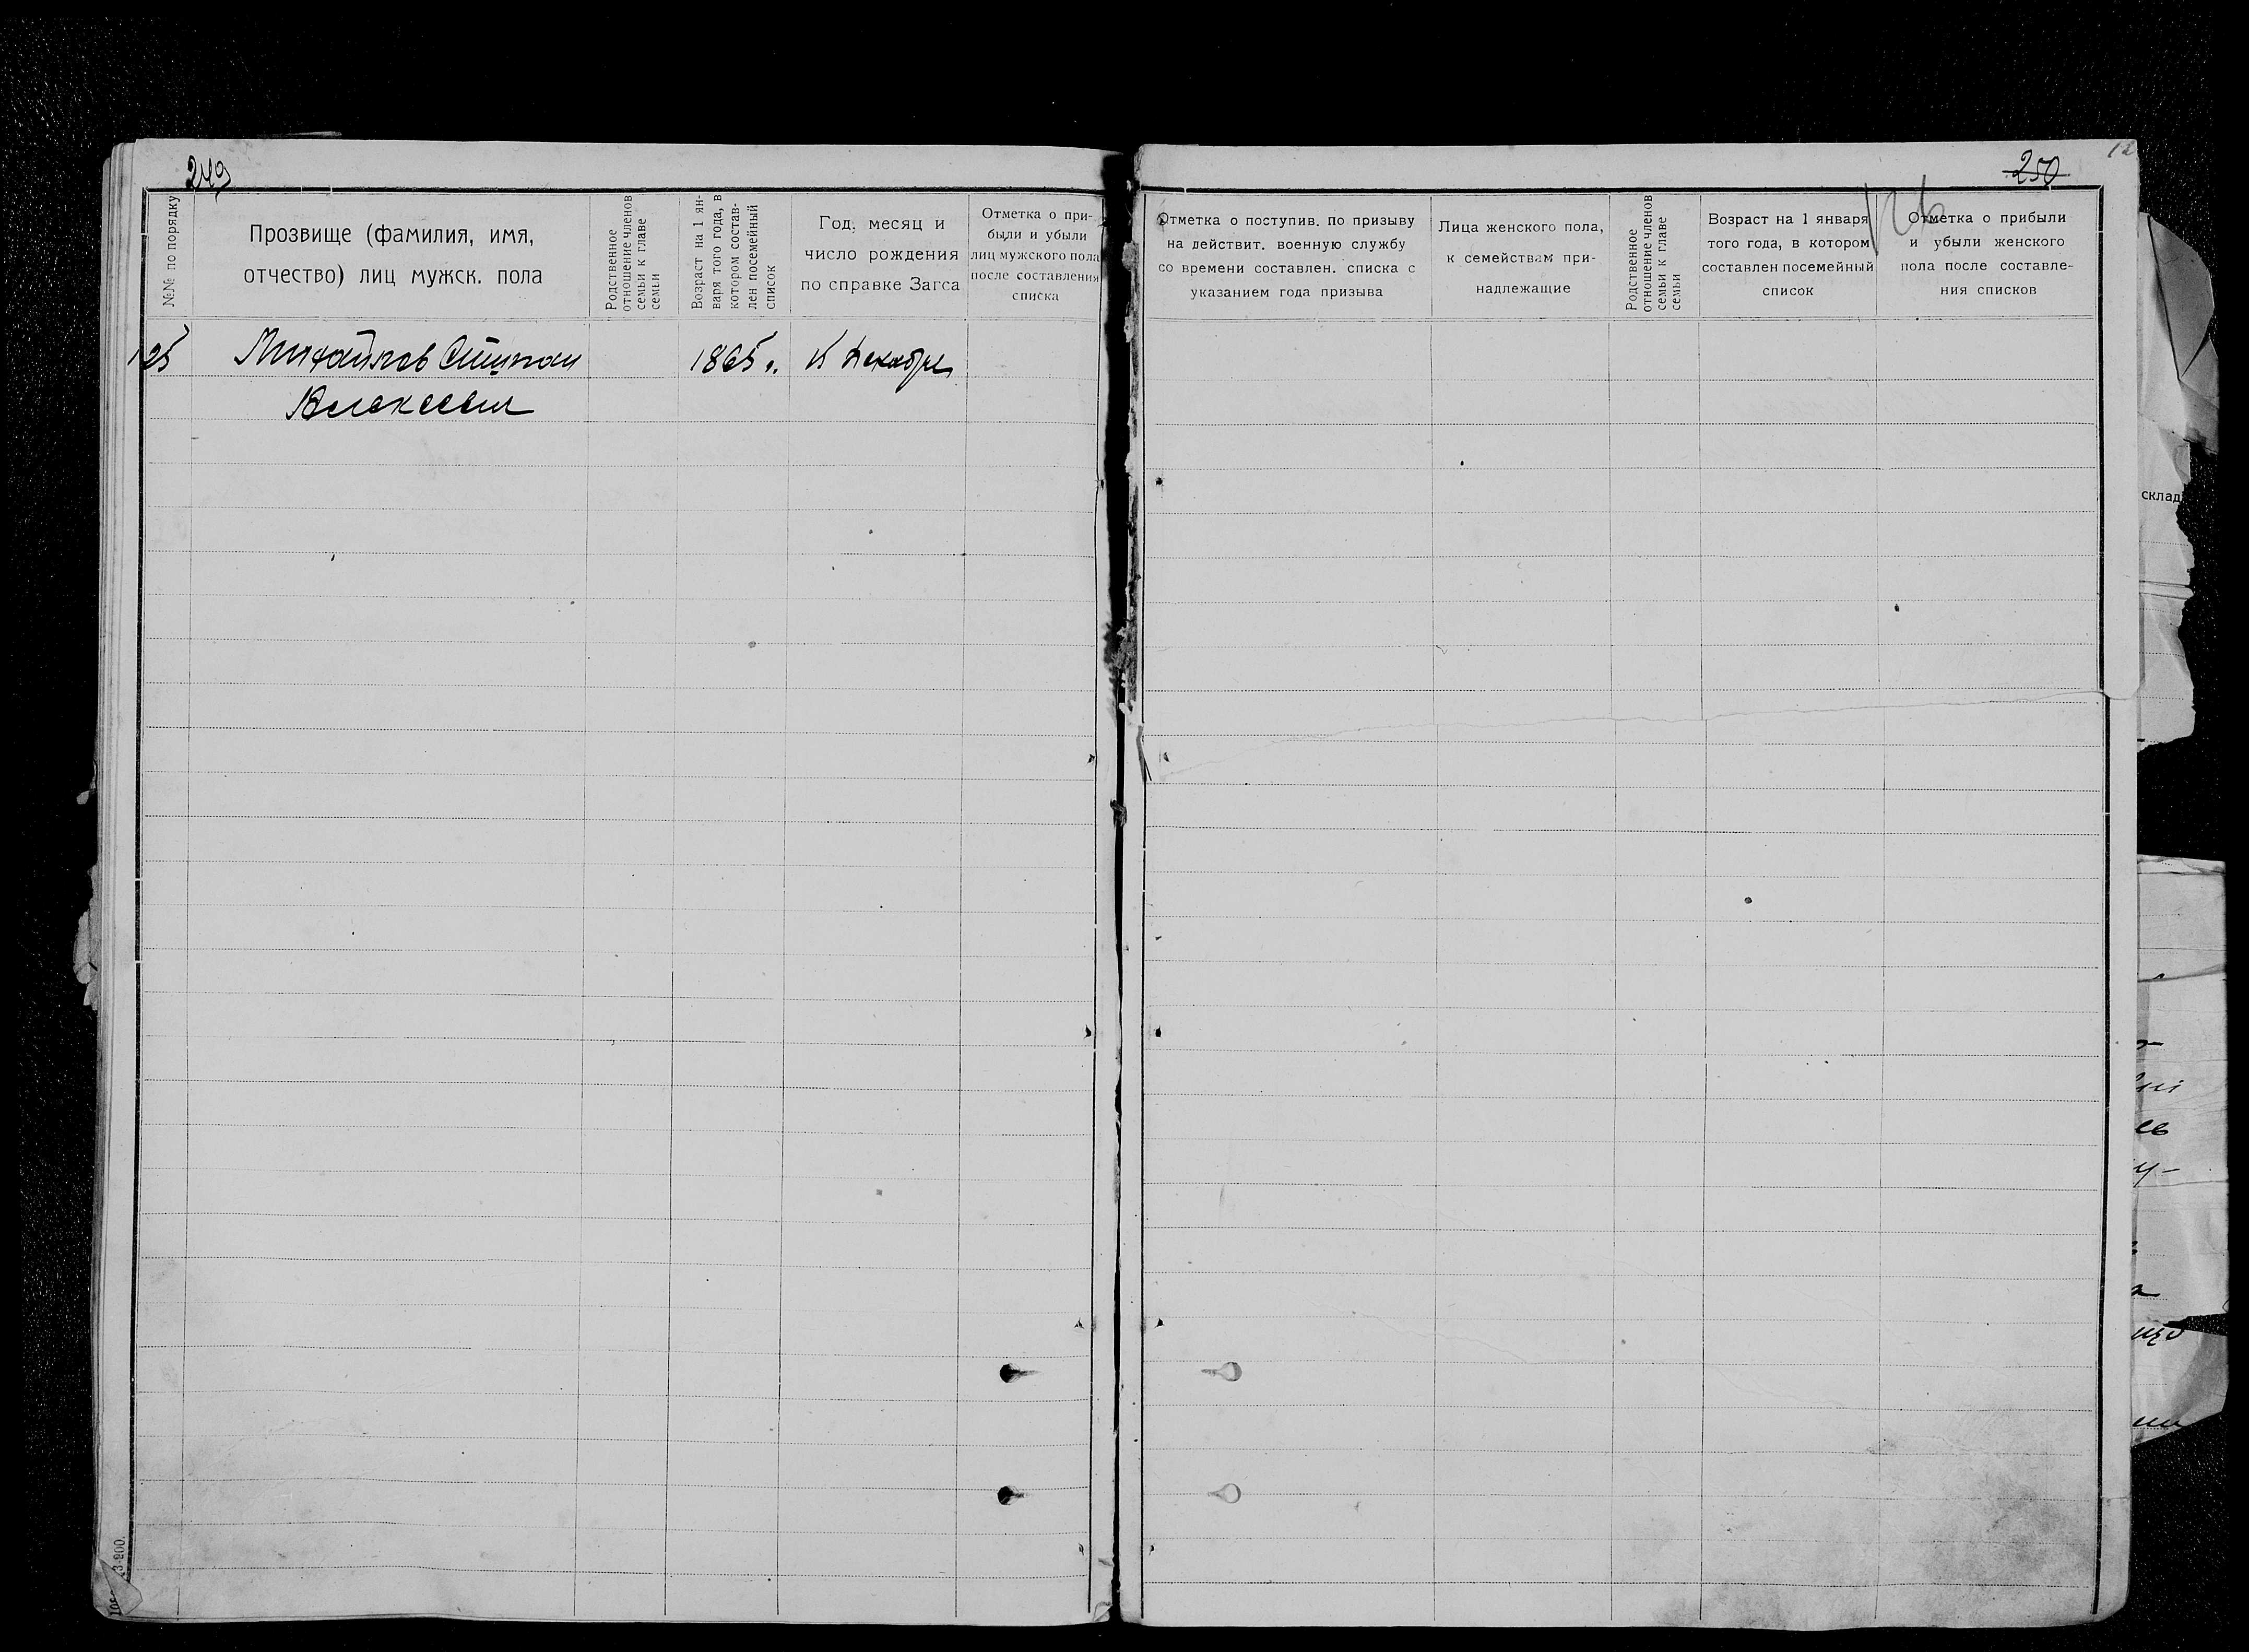 249
№№ по порядку
Прозвище (фамилия, имя,
отчество) лиц мужск. пола
Родственное
отношение членов
семьи к главе
семьи
Возраст на 1 ян-
варя того года, в
котором состав-
лен посемейный
список
Год, месяц и
число рождения
по справке Загса
Отметка о при-
были и убыли
лиц мужского пола
после составления
списка
125 Михайлов Степан 1865 г. Декабря
Алексеевич
250
126
Отметка о поступив. по призыву
на действит. военную службу
со времени составлен. списка с
указанием года призыва
Лица женского пола,
к семействам при-
надлежащие
Родственное
отношение членов
семьи к главе
семьи
Возраст на 1 января
того года, в котором
составлен посемейный
список
Отметка о прибыли
и убыли женского
пола после составле-
ния списков
склад